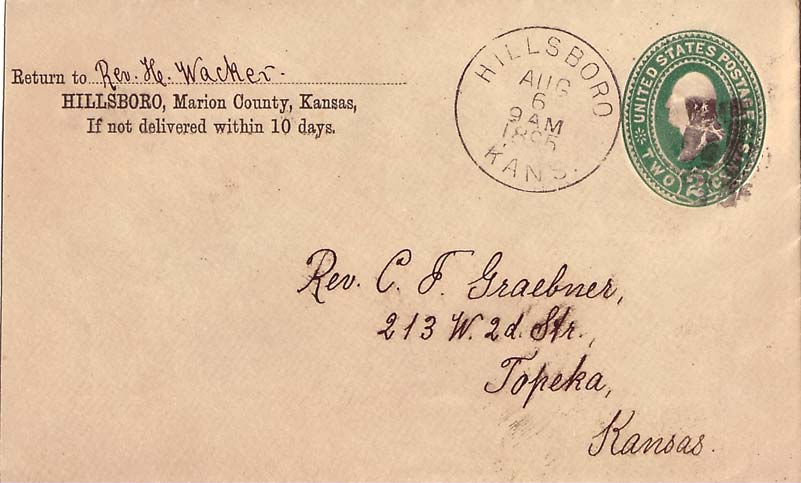 Return to Rev. H. Wacker.
HILLSBORO, Marion County, Kansas,
If not delivered within 10 days.
HILLSBORO
AUG
6
9AM
1895
KANS.
UNITED STATES POSTAGE
TWO 2 CENTS
Rev. C. F. Graebner,
213 W. 2d. Str.,
Topeka,
Kansas.